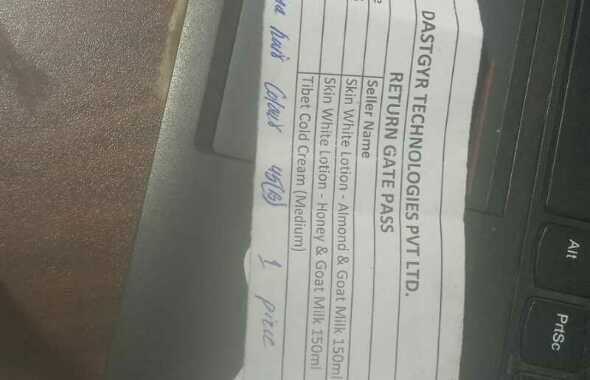 DASTGYR TECHNOLOGIES PVT LTD.
RETURN GATE PASS
Seller Name
Skin White Lotion - Almond & Goat Milk 150ml
Skin White Lotion - Honey & Goat Milk 150ml
Tibet Cold Cream (Medium)
hair Colour 45(B) 1 piece
Alt
PrtSc